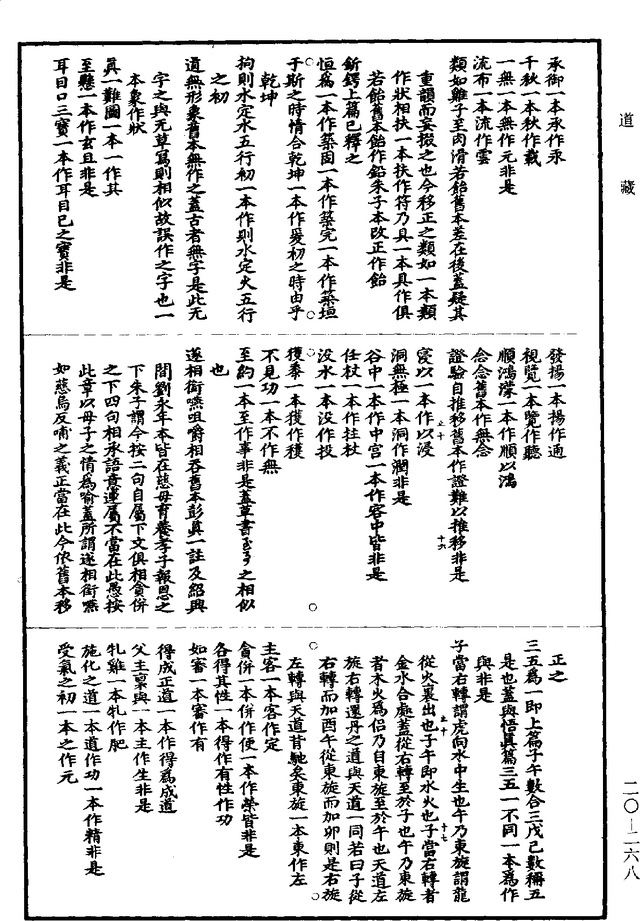 道藏
承御一本承作永
千秋一本秋作載
一無一本無作元非是
流布一本流作雲
類如雞子至肉滑若飴舊本差在後蓋疑其
重韻而妄掇之也今移正之類如一本類
作狀相扶一本扶作符乃具一本具作俱
若飴舊本飴作鉛朱子本改正作飴
鈃鍔上篇已釋之
恒爲一本作築固一本作築完一本作築垣
于斯之時情合乾坤一本作爰初之時由乎
乾坤
拘則水定水五行初一本作則水定火五行
之初
道無形象舊本無作之蓋古者無字是此无
字之與无草寫則相似故誤作之字也一
本象作狀
眞一難圖一本一作其
至懸一本作玄且非是
耳目口三寶一本作耳目已之寶非是
發揚一本揚作通
視覽一本覽作聽
順鴻濛一本作順以鴻
念念舊本作無念
證驗自推移舊本作證難以推移非是
寖以一本作以浸
洞無極一本洞作潤非是
谷中一本作中宫一本作容中皆非是
任杖一本作拄杖
没水一本没作投
獲黍一本獲作穫
不見功一本不作無
至約一本至作事非是蓋草書之相似
也
遂相銜嚥咀嚼相吞舊本彭眞一註及紹興
間劉永年本皆在慈母育養孝子報恩之
下朱子謂今按二句自屬下文俱相貪併
之下四句相承語意連屬不當在此愚按
此章以母子之情爲喻蓋所謂遂相銜嚥
如慈烏反哺之義正當在此今依舊本移
正之
三五爲一即上篇子午數合三戊己數稱五
是也蓋與悟眞篇三五一不同一本爲作
與非是
子當右轉謂虎向水中生也午乃東旋謂龍
從火裏出也子午即水火也子當右轉者
金水合處蓋從右轉至於子也午乃東旋
者木火爲侣乃自東旋至於午也天道左
旋右轉還丹之道與天道一同若曰子從
右轉而加酉午從東旋而加卯則是右旋
左轉與天道昔馳矣東旋一本東作左
主客一本客作定
貪併一本併作便一本作榮皆非是
各得其性一本得作有性作功
如審一本審作有
得成正道一本作得爲成道
父主稟與一本主作生非是
牝雞一本牝作肥
施化之道一本道作功一本作精非是
受氣之初一本之作元
二〇—二六八